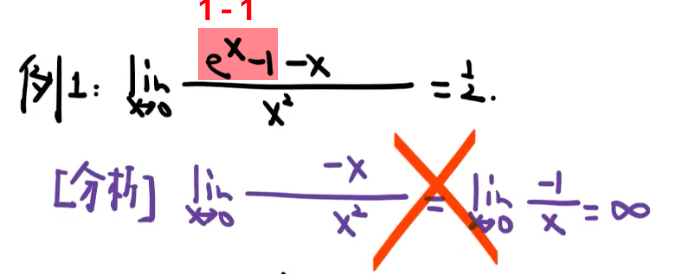 1 - 1
例1: lim x→0 (e^x - 1 - x) / x² = 1/2.
[分析] lim x→0 -x / x² = lim x→0 -1 / x = ∞